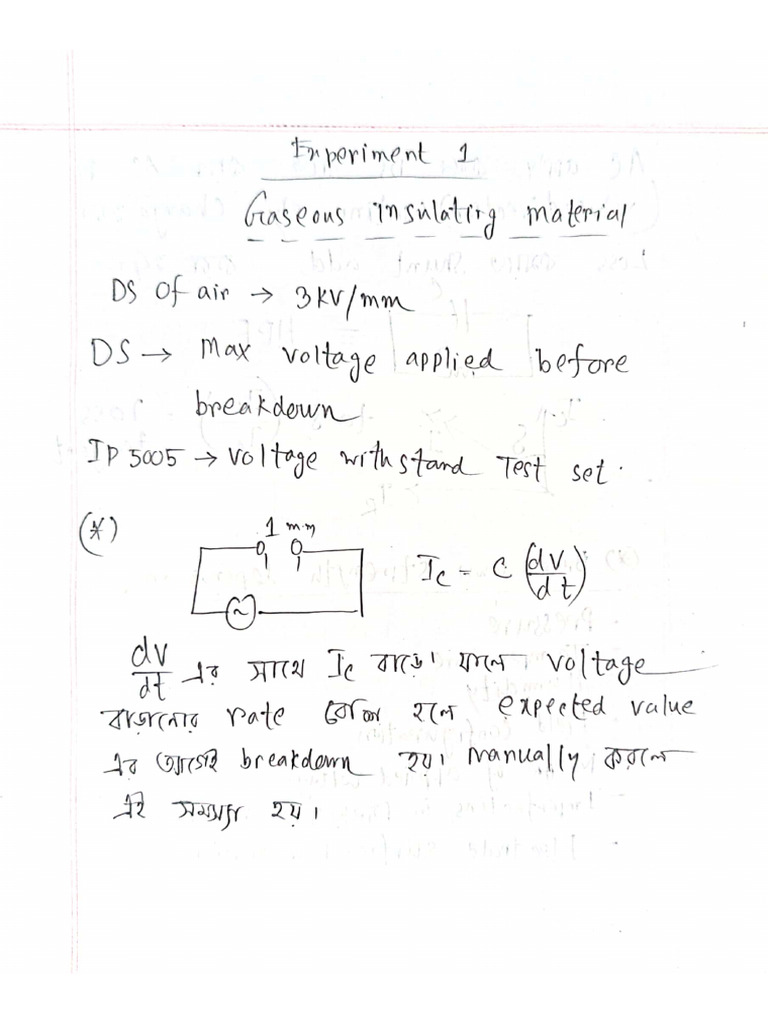 Experiment 1
Gaseous insulating material
DS of air → 3KV/mm
DS → Max voltage applied before
breakdown
IP 5005 → voltage withstand Test set.
(*)
1 mm
Ic = C (dv/dt)
dv/dt এর সাথে Ic বাড়ে। ফলে voltage
বাড়ানোর rate বেশি হলে expected value
এর আগেই breakdown হয়। Manually করলে
এই সমস্যা হয়।